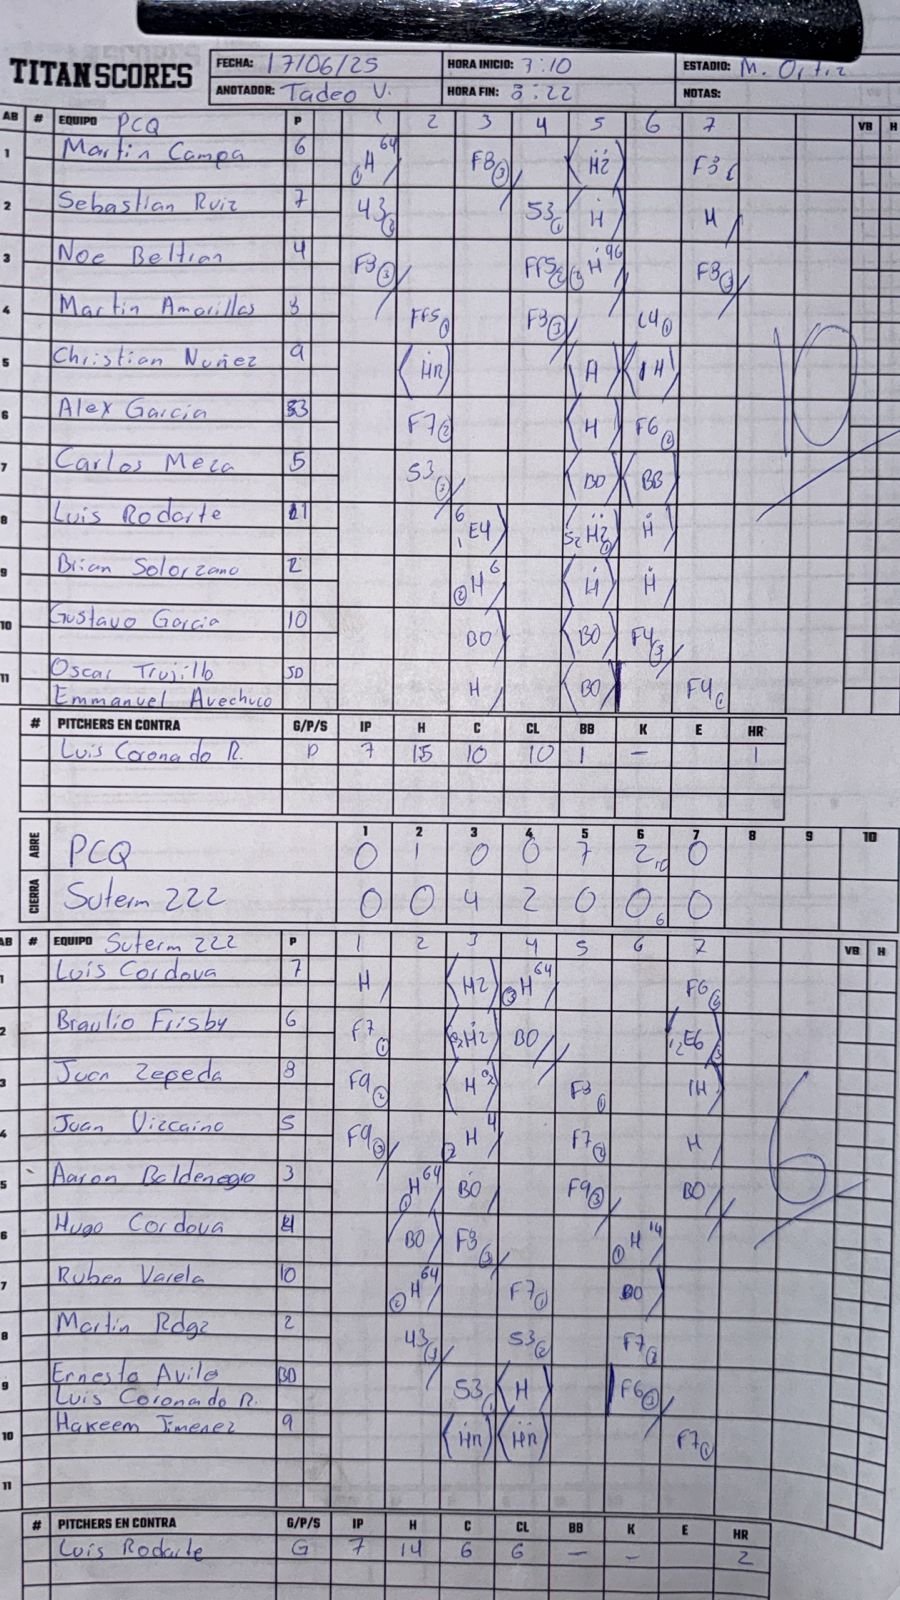 TITANSCORES
FECHA: 17/06/25 HORA INICIO: 7:10 ESTADIO: M. Ortiz
ANOTADOR: Tadeo V. HORA FIN: 8:22 NOTAS:
AB # EQUIPO PCQ P 1 2 3 4 5 6 7 VB H
1 Martin Campa 6 H 64 F8 3 H2 F3
2 Sebastian Ruiz 7 43 2 53 1 H H
3 Noe Beltran 4 F8 3 FF5 2 3 H 96 F8 3
4 Martin Amarillas 8 FF5 1 F3 3 L4 1
5 Christian Nuñez 9 HR H IH 10
6 Alex Garcia 3 F7 2 H F6 2
7 Carlos Meza 5 53 3 BO BB
8 Luis Rodarte 1 6 1 E4 52 H2 1 H
9 Brian Solorzano 2 2 H 6 H H
10 Gustavo Garcia 10 BO BO F4 3
11 Oscar Trujillo JD H BO F4 1
Emmanuel Avechuco
# PITCHERS EN CONTRA G/P/S IP H C CL BB K E HR
Luis Coronado R. P 7 15 10 10 1 - 1
1 2 3 4 5 6 7 8 9 10
ABRE PCQ 0 1 0 0 7 2 10 0
CIERRA Suterm 222 0 0 4 2 0 0 6 0
AB # EQUIPO Suterm 222 P 1 2 3 4 5 6 7 VB H
1 Luis Cordova 7 H H2 3 H 64 F6
2 Braulio Frisby 6 F7 1 H2 BO 12 E6 3
3 Juan Zepeda 8 F9 2 H 92 F8 1 IH
4 Juan Vizcaino 5 F9 3 2 H 4 F7 2 H
5 Aaron Baldenegro 3 1 H 64 BO F9 3 BO 6
6 Hugo Cordova 4 BO F8 3 1 H 14
7 Ruben Varela 10 2 H 64 F7 1 BO
8 Martin Rdgz 2 43 3 53 2 F7 2
9 Ernesto Avila BD 53 1 H F6 3
Luis Coronado R.
10 Hakeem Jimenez 9 HR HR F7 1
11
# PITCHERS EN CONTRA G/P/S IP H C CL BB K E HR
Luis Rodarte G 7 14 6 6 - - 2